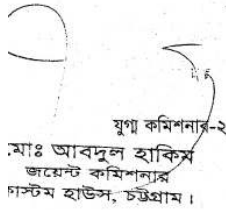 যুগ্ম কমিশনার-২
মোঃ আবদুল হাকিম
জয়েন্ট কমিশনার
কাস্টম হাউস, চট্টগ্রাম।